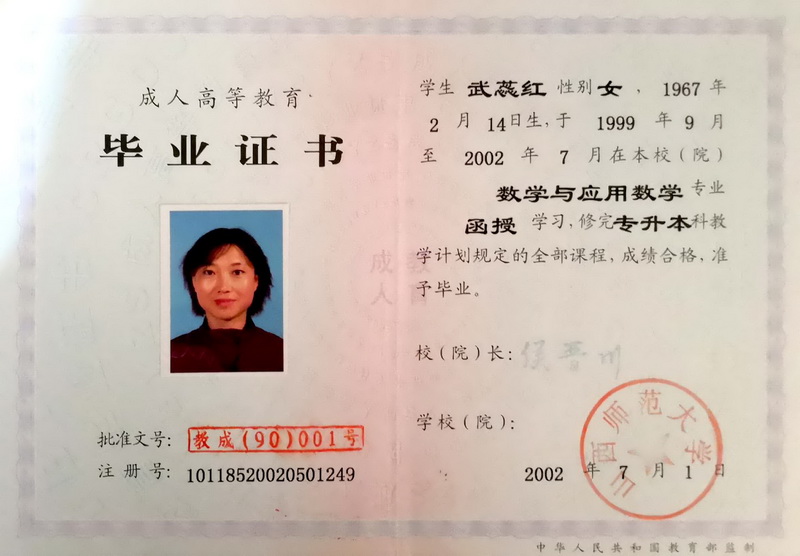 成人高等教育
毕业证书
批准文号：教成(90)001号
注册号：101185200205012​49
学生 武蕊红 性别 女 ，1967 年
2 月 14日生，于 1999 年 9 月
至 2002 年 7 月在本校（院）
数学与应用数学 专业
函授 学习，修完专升本科教
学计划规定的全部课程，成绩合格，准
予毕业。
校（院）长：侯晋川
学校（院）：
山西师范大学
2002 年 7 月 1 日
中华人民共和国教育部监制